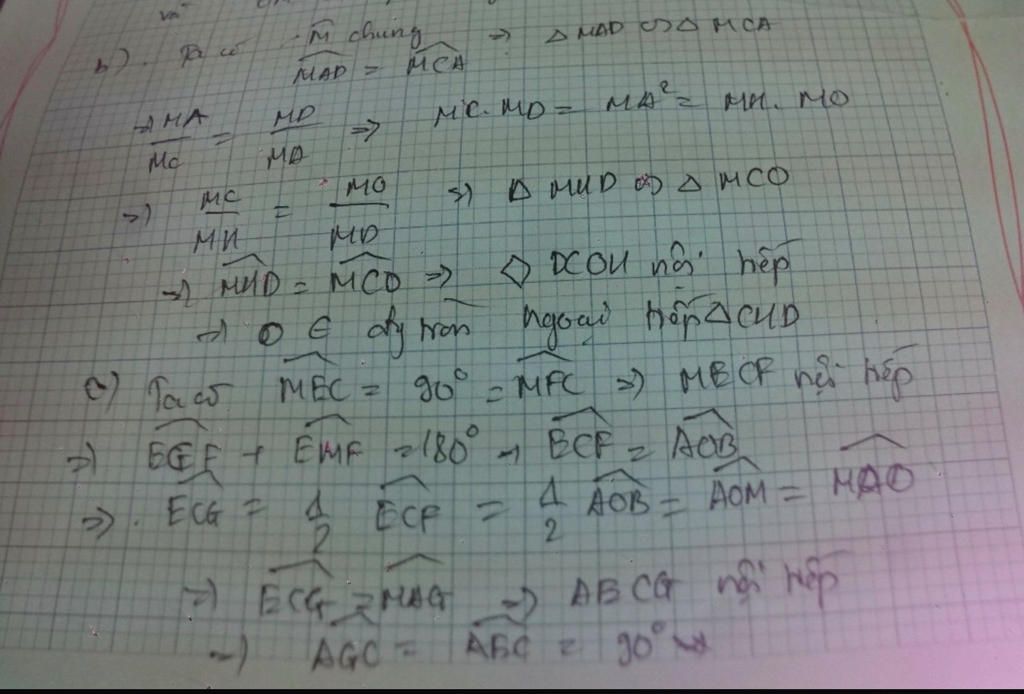 và
b). Ta có M̂ chung => △MAD ∽ △MCA
MAD = MCA
=> MA/MC = MD/MA => MC.MD = MA² = MH.MO
=> MC/MH = MO/MD => △MHD ∽ △MCO
=> MHD = MCO => ◇ DCOH nội tiếp
=> O ∈ đg tròn ngoại tiếp △CHD
c) Ta có MEC = 90° = MFC => MECF nội tiếp
=> ECF + EMF = 180° → ECF = AOB
=> ECG = 1/2 ECF = 1/2 AOB = AOM = HAO
=> ECG = HAG => AECG nội tiếp
→ AGC = AEC = 90°